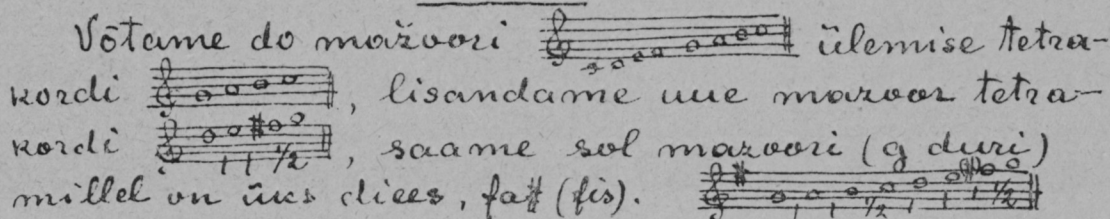 Võtame do mažoori ülemise tetra-
kordi , lisandame uue mazoor tetra-
kordi 1 1 1/2 , saame sol mazoori (g duri)
millel on üks diees, fa# (fis). 1 1 1/2 1 1 1 1/2